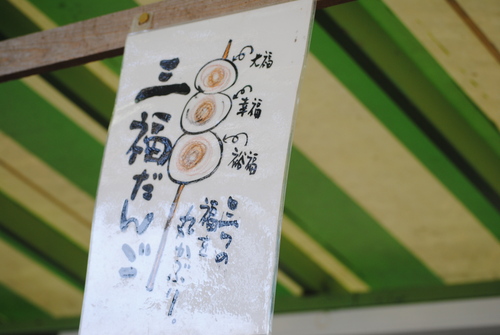 三福だんご
大福
幸福
裕福
三つの
福を